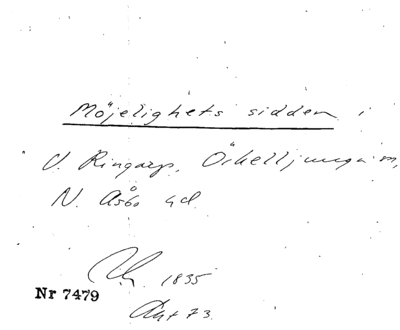 Möjelighets sidden i
V. Ringarp, Örkelljunga sn,
N. Åsbo hd.
1835
Nr 7479
73.